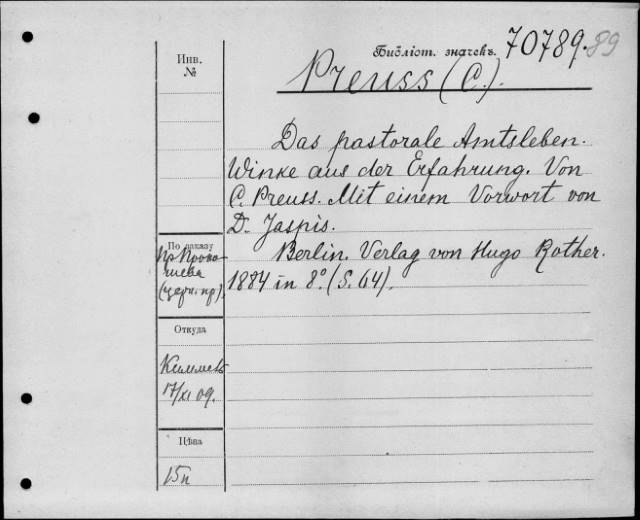 Библіот. значекъ. 70789.89
Инв.
№
Preuss (C.).
Das pastorale Amtsleben.
Winke aus der Erfahrung. Von
C. Preuss. Mit einem Vorwort von
D. Jaspis.
Berlin. Verlag von Hugo Rother.
1884 in 8º. (S. 64).
По заказу
(церк. пр).
Откуда
17/XI 09.
Цѣна
15